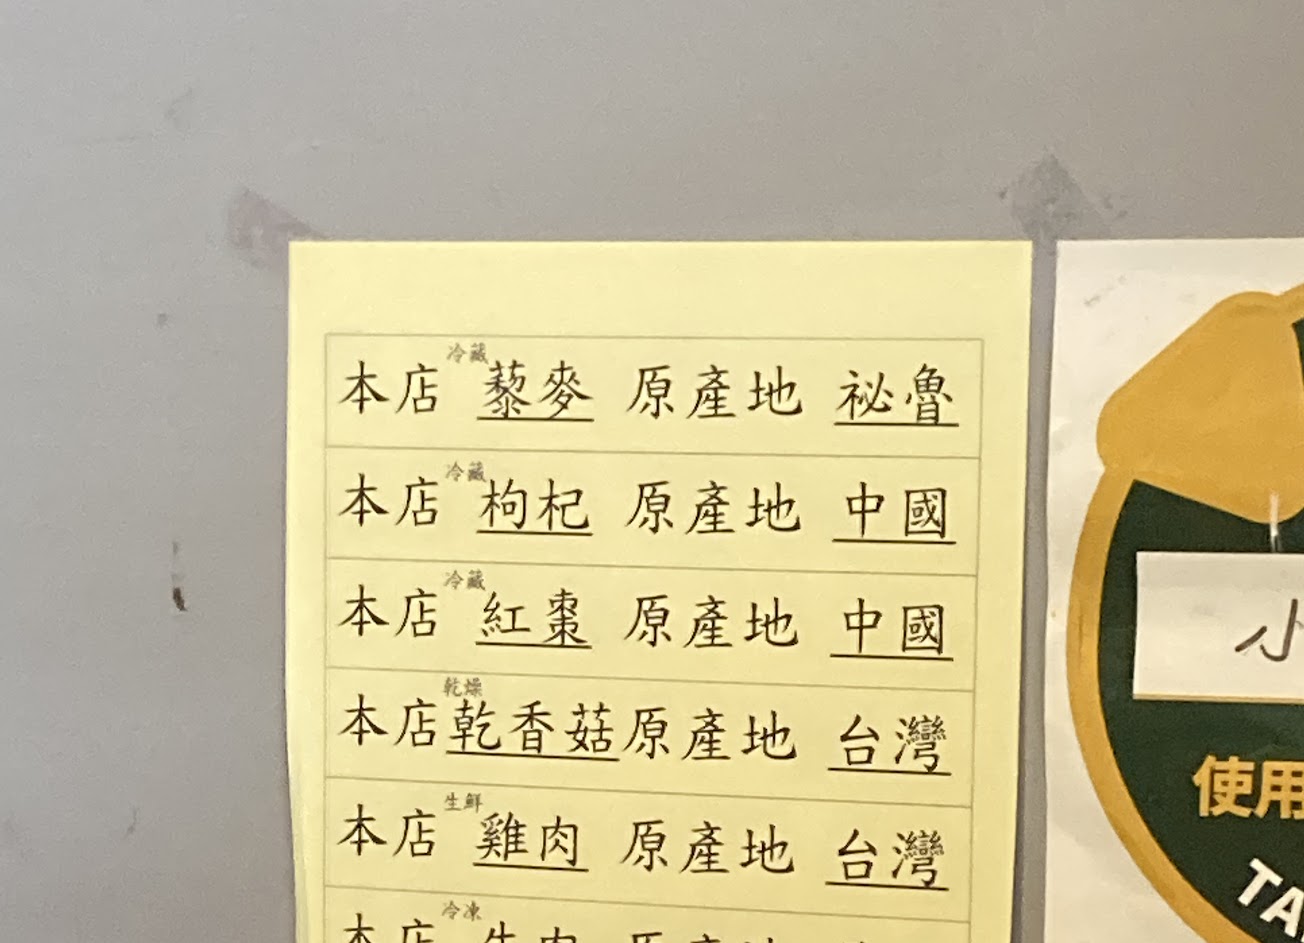 冷藏
本店 藜麥 原產地 祕魯
冷藏
本店 枸杞 原產地 中國
冷藏
本店 紅棗 原產地 中國
乾燥
本店乾香菇原產地 台灣
生鮮
本店 雞肉 原產地 台灣
冷凍
本店 牛肉 原產地
小
使用
TA